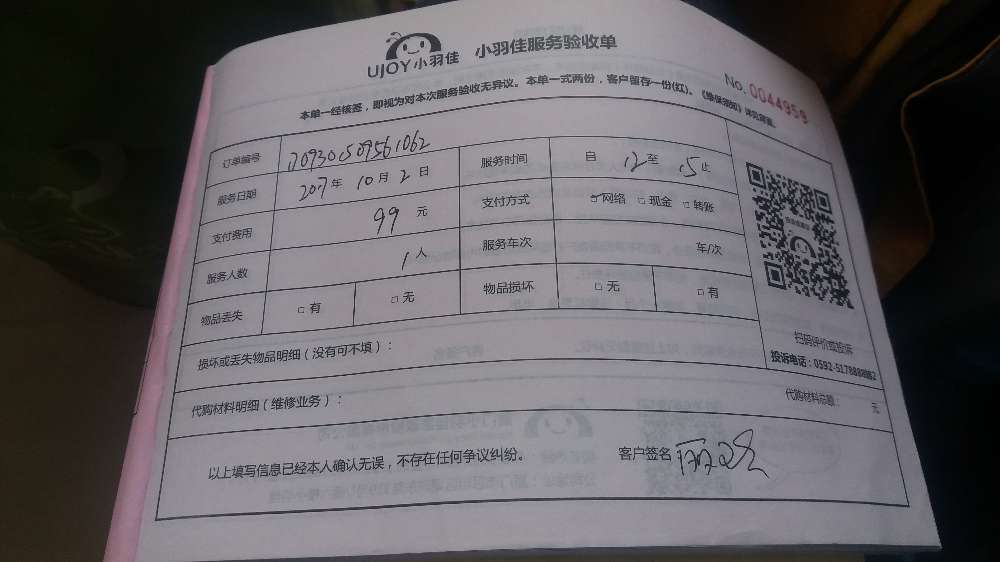 UJOY小羽佳 小羽佳服务验收单
No. 0044959
本单一经核签，即视为对本次服务验收无异议。本单一式两份，客户留存一份(红)。《维保须知》详见背面。
订单编号 J09301509561062 服务时间 自 12 至 15 止
服务日期 2017年 10月 2日 支付方式 ☑网络 □现金 □转账
支付费用 99 元 服务车次 车/次
服务人数 1 人 物品损坏 □无 □有
物品丢失 □有 □无
扫码评价或投诉
投诉电话：0592-5178888转2
损坏或丢失物品明细（没有可不填）：
代购材料明细（维修业务）： 代购材料总额： 元
以上填写信息已经本人确认无误，不存在任何争议纠纷。 客户签名